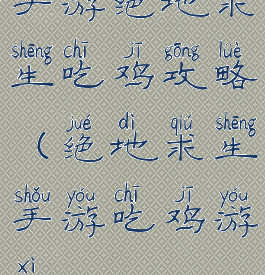 手游绝地求
shēng chī jī gōng luè
生吃鸡攻略
jué dì qiú shēng
(绝地求生
shǒu yóu chī jī yóu
手游吃鸡游
xì